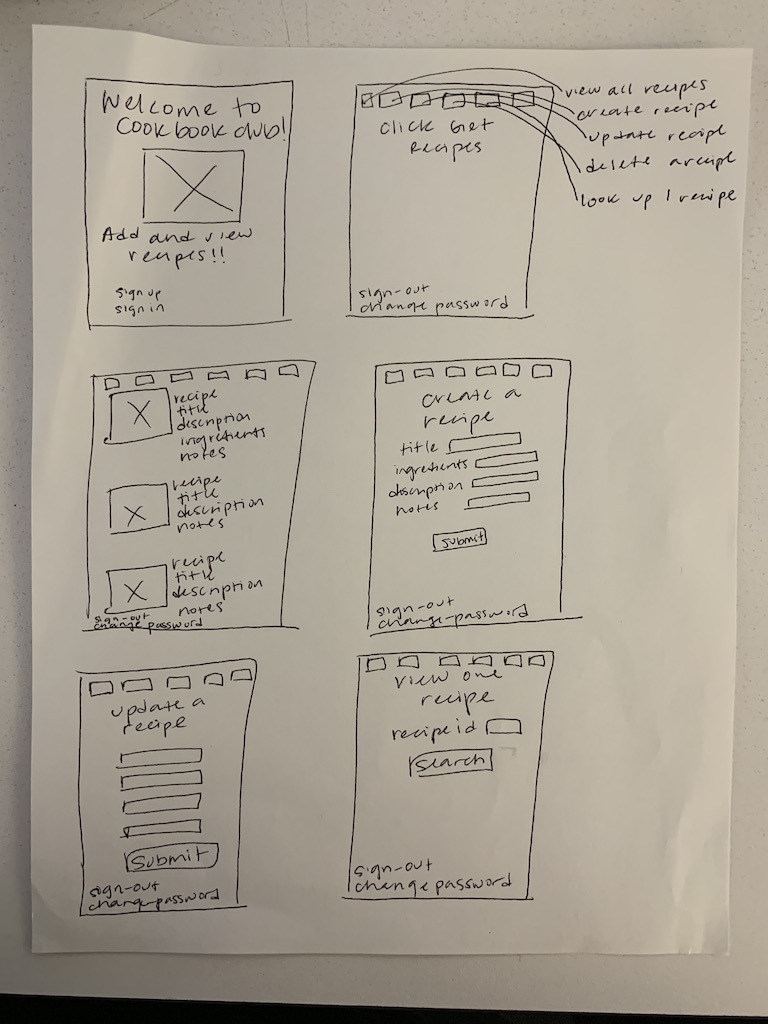 Welcome to
Cookbook club!
Add and view
recipes!!
sign up
sign in
view all recipes
create recipe
update recipe
delete a recipe
look up 1 recipe
Click Get
Recipes
sign-out
change password
recipe
title
description
ingredients
notes
recipe
title
description
notes
recipe
title
description
notes
sign-out
change password
create a
recipe
title
ingredients
description
notes
submit
sign-out
change-password
update a
recipe
submit
sign-out
change password
view one
recipe
recipe id
search
sign-out
change password